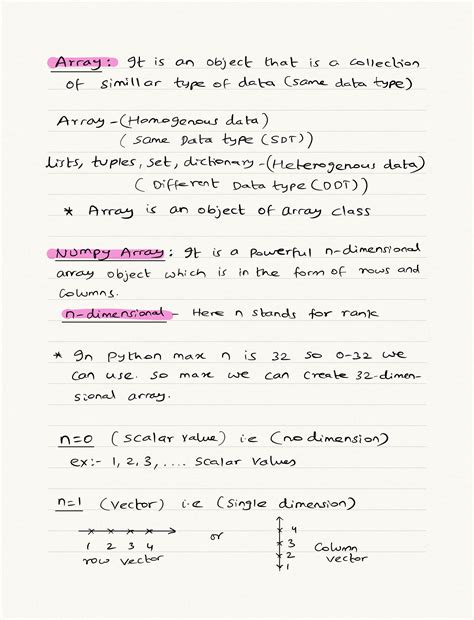 Array: It is an object that is a collection
of simillar type of data (same data type)
Array - (Homogenous data)
( Same Data type (SDT))
lists, tuples, set, dictionary - (Heterogenous data)
( Different Data type (DDT))
* Array is an object of array class
Numpy Array: It is a powerful n-dimensional
array object which is in the form of rows and
columns.
n-dimensional - Here n stands for rank
* In Python max n is 32 so 0-32 we
can use. so max we can create 32-dimen-
sional array.
n=0 (scalar value) i.e (no dimension)
ex:- 1, 2, 3, .... scalar values
n=1 (vector) i.e (single dimension)
1 2 3 4
row vector
or
4
3
2
1
column
vector